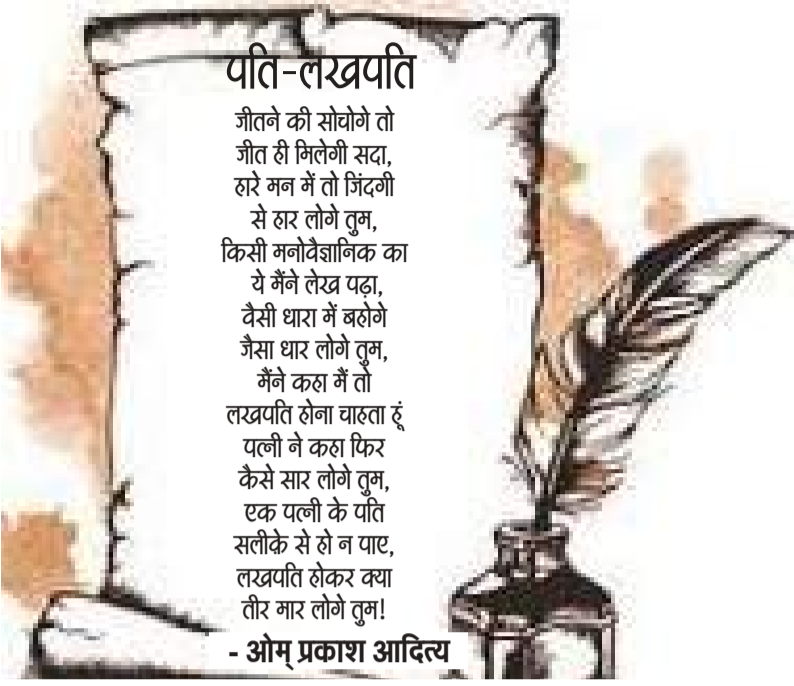 पति-लखपति
जीतने की सोचोगे तो
जीत ही मिलेगी सदा,
हारे मन में तो जिंदगी
से हार लोगे तुम,
किसी मनोवैज्ञानिक का
ये मैंने लेख पढ़ा,
वैसी धारा में बहोगे
जैसा धार लोगे तुम,
मैंने कहा मैं तो
लखपति होना चाहता हूं
पत्नी ने कहा फिर
कैसे सार लोगे तुम,
एक पत्नी के पति
सलीके़ से हो न पाए,
लखपति होकर क्या
तीर मार लोगे तुम!
- ओम् प्रकाश आदित्य